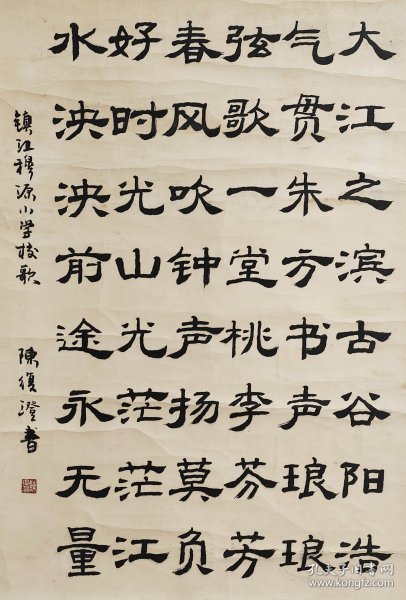 大江之滨古谷阳浩
气贯朱方书声琅琅
弦歌一堂桃李芬芳
春风吹钟声扬莫负
好时光山光茫茫江
水泱泱前途永无量
鎮江穆源小学校歌
陳復澄書
孔夫子旧书网
www.kongfz.com